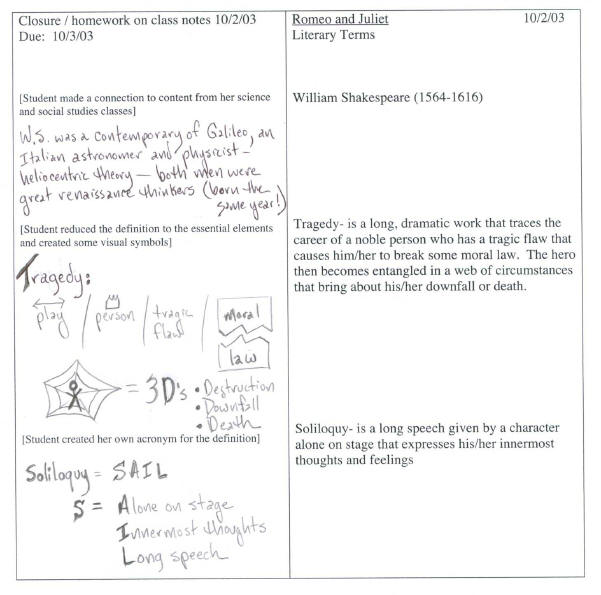 Closure / homework on class notes 10/2/03
Due: 10/3/03
[Student made a connection to content from her science
and social studies classes]
W.S. was a contemporary of Galileo, an
Italian astronomer and physicist –
heliocentric theory – both men were
great renaissance thinkers (born the
same year!)
[Student reduced the definition to the essential elements
and created some visual symbols]
Tragedy:
play / person / tragic flaw / moral law
= 3D's • Destruction
• Downfall
• Death
[Student created her own acronym for the definition]
Soliloquy = SAIL
S = Alone on stage
Innermost thoughts
Long speech
Romeo and Juliet 10/2/03
Literary Terms
William Shakespeare (1564-1616)
Tragedy- is a long, dramatic work that traces the
career of a noble person who has a tragic flaw that
causes him/her to break some moral law. The hero
then becomes entangled in a web of circumstances
that bring about his/her downfall or death.
Soliloquy- is a long speech given by a character
alone on stage that expresses his/her innermost
thoughts and feelings